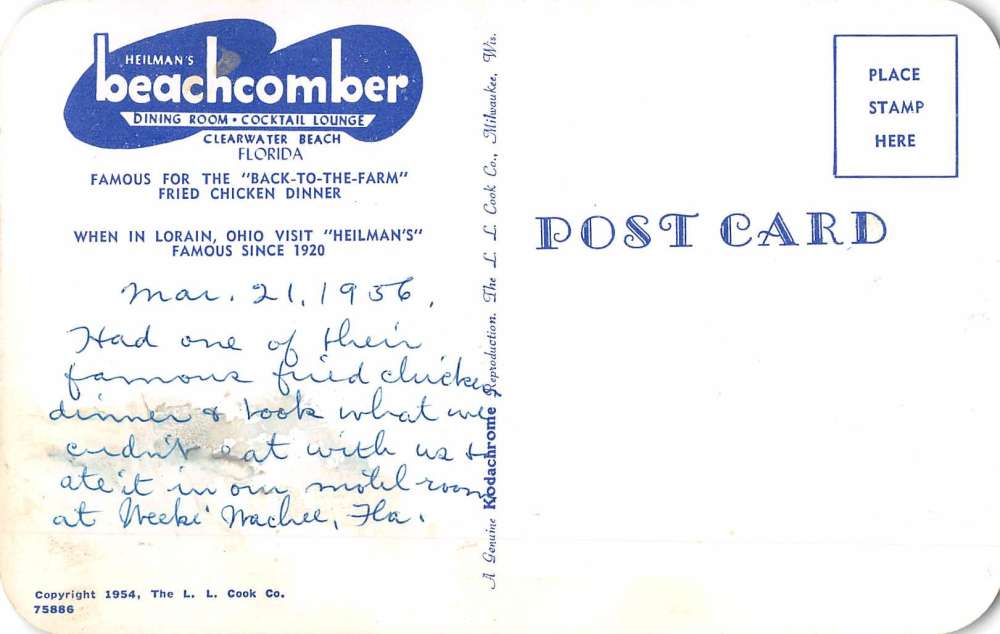 HEILMAN'S
beachcomber
DINING ROOM • COCKTAIL LOUNGE
CLEARWATER BEACH
FLORIDA
FAMOUS FOR THE "BACK-TO-THE-FARM"
FRIED CHICKEN DINNER
WHEN IN LORAIN, OHIO VISIT "HEILMAN'S"
FAMOUS SINCE 1920
Mar. 21, 1956.
Had one of their
famous fried chicken
dinner & took what we
cudn't eat with us &
ate it in our motel room
at Weeki Wachee, Fla.
Copyright 1954, The L. L. Cook Co.
75886
A Genuine Kodachrome Reproduction. The L. L. Cook Co., Milwaukee, Wis.
PLACE
STAMP
HERE
POST CARD